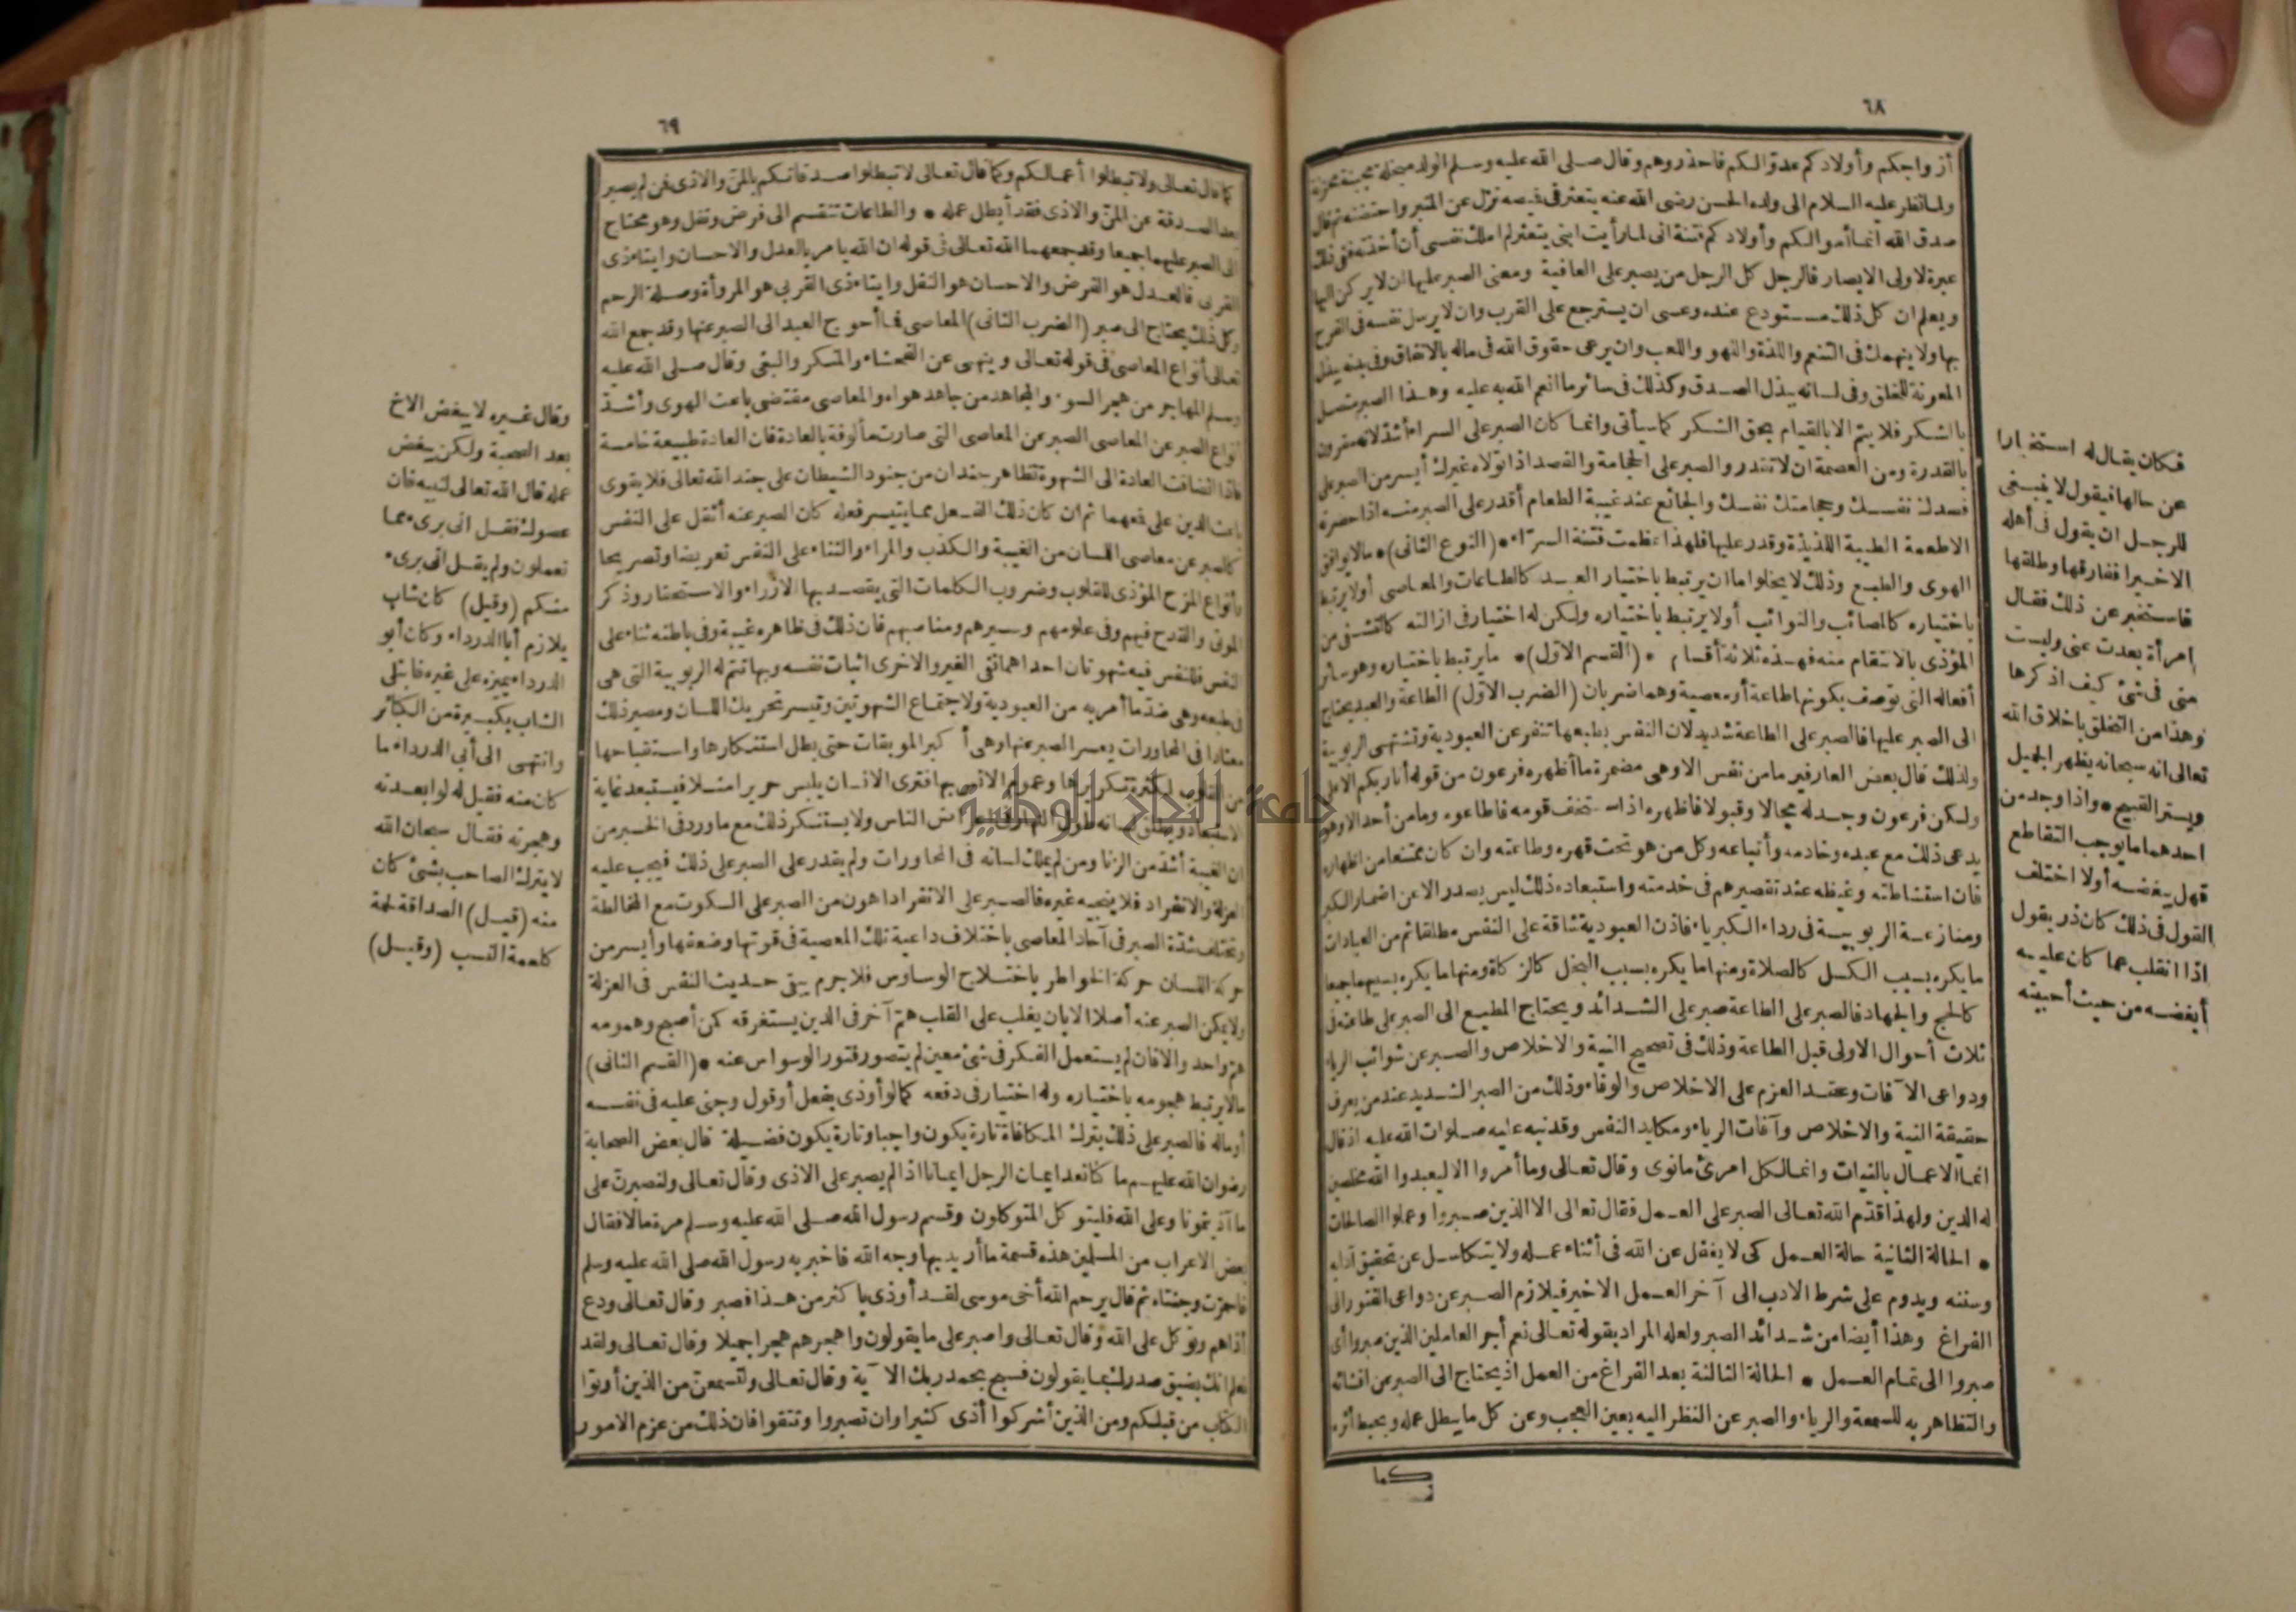 ٦٨
أزواجكم وأولادكم عدوّا لكم فاحذروهم وقال صلى الله عليه وسلم الولد مبخلة مجبنة محزنة
ولما نظر عليه السلام الى ولده الحسن رضى الله عنه يتعثر فى قميصه نزل عن المنبر واحتضنه ثم قال
صدق الله انما أموالكم وأولادكم فتنة انى لما رأيت ابنى يتعثر لم املك نفسى أن أخذته ففى ذلك
عبرة لاولى الابصار فالرجل كل الرجل من يصبر على العافية ومعنى الصبر عليها ان لا يركن اليها
ويعلم ان كل ذلك مستودع عنده وعسى ان يسترجع على القرب وان لا يرسل نفسه فى الفرح
بها ولا ينهمك فى التنعم واللذة واللهو واللعب وان يرعى حقوق الله فى ماله بالانفاق وفى بدنه ببذل
المعونة للخلق وفى لسانه ببذل الصدق وكذلك فى سائر ما انعم الله به عليه وهذا الصبر متصل
بالشكر فلا يتم الا بالقيام بحق الشكر كما سيأتى وانما كان الصبر على السراء أشدّ لانه مقرون
بالقدرة ومن العصمة ان لا تقدر والصبر على الحجامة والفصد اذا تولاه غيرك أيسر من الصبر على
فصدك نفسك وحجامتك نفسك والجائع عند غيبة الطعام أقدر على الصبر منه اذا حضرته
الاطعمة الطيبة اللذيذة وقدر عليها فلهذا عظمت فتنة السرّاء • (النوع الثانى) • ما لا يوافق
الهوى والطبع وذلك لا يخلوا ما ان يرتبط باختيار العبد كالطاعات والمعاصى أولا يرتبط
باختياره كالمصائب والنوائب أولا يرتبط باختياره ولكن له اختيار فى ازالته كالتشفى من
المؤذى بالانتقام منه فهذه ثلاثة أقسام • (القسم الاوّل) • ما يرتبط باختياره وهو سائر
أفعاله التى توصف بكونها طاعة أو معصية وهما ضربان (الضرب الاوّل) الطاعة والعبد يحتاج
الى الصبر عليها فالصبر على الطاعة شديد لان النفس بطبعها تنفر عن العبودية وتشتهى الربوبية
ولذلك قال بعض العارفين ما من نفس الا وهى مضمرة ما أظهره فرعون من قوله أنا ربكم الاعلى
ولكن فرعون وجد له مجالا وقبولا فاظهره اذ استخف قومه فاطاعوه وما من أحد الا وهو
يدعى ذلك مع عبده وخادمه وأتباعه وكل من هو تحت قهره وطاعته وان كان ممتنعا من اظهاره
فان استشاطته وغيظه عند تقصيرهم فى خدمته واستبعاده ذلك ليس يصدر الا عن اضمار الكبر
ومنازعة الربوبية فى رداء الكبرياء فاذن العبودية شاقة على النفس مطلقا ثم من العبادات
ما يكره بسبب الكسل كالصلاة ومنها ما يكره بسبب البخل كالزكاة ومنها ما يكره بسببهما جميعا
كالحج والجهاد فالصبر على الطاعة صبر على الشدائد ويحتاج المطيع الى الصبر على طاعته فى
ثلاث أحوال الاولى قبل الطاعة وذلك فى تصحيح النية والاخلاص والصبر عن شوائب الرياء
ودواعى الآفات وعقد العزم على الاخلاص والوفاء وذلك من الصبر الشديد عند من يعرف
حقيقة النية والاخلاص وآفات الرياء ومكايد النفس وقد نبه عليه صلوات الله عليه اذ قال
انما الاعمال بالنيات وانما لكل امرئ ما نوى وقال تعالى وما أمروا الا ليعبدوا الله مخلصين
له الدين ولهذا قدّم الله تعالى الصبر على العمل فقال تعالى الا الذين صبروا وعملوا الصالحات
• الحالة الثانية حالة العمل كى لا يغفل عن الله فى أثناء عمله ولا يتكاسل عن تحقيق آدابه
وسننه ويدوم على شرط الادب الى آخر العمل الاخير فيلازم الصبر عن دواعى الفتور الى
الفراغ وهذا أيضا من شدائد الصبر ولعله المراد بقوله تعالى نعم أجر العاملين الذين صبروا أى
صبروا الى تمام العمل • الحالة الثالثة بعد الفراغ من العمل اذ يحتاج الى الصبر عن افشائه
والتظاهر به للسمعة والرياء والصبر عن النظر اليه بعين العجب وعن كل ما يبطل عمله ويحبط أثره
كما
فكان يقال له استخبارا
عن حالها فيقول لا ينبغى
للرجل ان يقول فى أهله
الا خيرا ففارقها وطلقها
فاستخبر عن ذلك فقال
امرأة بعدت عنى وليست
منى فى شئ كيف اذكرها
وهذا من التخلق باخلاق الله
تعالى انه سبحانه يظهر الجميل
ويستر القبيح • واذا وجد من
احدهما ما يوجب التقاطع
فهل يبغضه أولا اختلف
القول فى ذلك كان ذر يقول
اذا انقلب عما كان عليه
أبغضه من حيث أحببته
٦٩
كما قال تعالى ولا تبطلوا أعمالكم وكما قال تعالى لا تبطلوا صدقاتكم بالمنّ والاذى فمن لم يصبر
بعد الصدقة عن المنّ والاذى فقد أبطل عمله • والطاعات تنقسم الى فرض ونفل وهو محتاج
الى الصبر عليهما جميعا وقد جمعهما الله تعالى فى قوله ان الله يامر بالعدل والاحسان وايتاء ذى
القربى فالعدل هو الفرض والاحسان هو النفل وايتاء ذى القربى هو المروأة وصلة الرحم
وكل ذلك يحتاج الى صبر (الضرب الثانى) المعاصى فما أحوج العبد الى الصبر عنها وقد جمع الله
تعالى أنواع المعاصى فى قوله تعالى وينهى عن الفحشاء والمنكر والبغى وقال صلى الله عليه
وسلم المهاجر من هجر السوء والمجاهد من جاهد هواه والمعاصى مقتضى باعث الهوى وأشدّ
أنواع الصبر عن المعاصى الصبر عن المعاصى التى صارت مألوفة بالعادة فان العادة طبيعة خامسة
فاذا انضافت العادة الى الشهوة تظاهر جندان من جنود الشيطان على جند الله تعالى فلا يقوى
باعث الدين على قمعهما ثم ان كان ذلك الفعل مما يتيسر فعله كان الصبر عنه أثقل على النفس
كالصبر عن معاصى اللسان من الغيبة والكذب والمراء والثناء على النفس تعريضا وتصريحا
وأنواع المزح المؤذى للقلوب وضروب الكلمات التى يقصد بها الازراء والاستحقار وذكر
الموتى والقدح فيهم وفى علومهم وسيرهم ومناصبهم فان ذلك فى ظاهره غيبة وفى باطنه ثناء على
النفس فللنفس فيه شهوتان احداهما نفى الغير والاخرى اثبات نفسه وبها تتم له الربوبية التى هى
فى طبعه وهى ضدّ ما أمر به من العبودية ولاجتماع الشهوتين وتيسر تحريك اللسان ومصير ذلك
معتادا فى المحاورات يعسر الصبر عنها وهى أكبر الموبقات حتى بطل استنكارها واستقباحها
من القلوب لكثرة تكررها وعموم الانس بها فترى الانسان يلبس حريرا مثلا فيستبعد غاية
الاستبعاد ويطلق لسانه طول النهار فى اعراض الناس ولا يستنكر ذلك مع ما ورد فى الخبر من
ان الغيبة أشدّ من الزنا ومن لم يملك لسانه فى المحاورات ولم يقدر على الصبر على ذلك فيجب عليه
العزلة والانفراد فلا ينجيه غيره فالصبر على الانفراد اهون من الصبر على السكوت مع المخالطة
وتختلف شدّة الصبر فى آحاد المعاصى باختلاف داعية تلك المعصية فى قوتها وضعفها وأيسر من
حركة اللسان حركة الخواطر باختلاج الوساوس فلا جرم يبقى حديث النفس فى العزلة
ولا يمكن الصبر عنه أصلا الا بان يغلب على القلب همّ آخر فى الدين يستغرقه كمن أصبح وهمومه
همّ واحد والا فان لم يستعمل الفكر فى شئ معين لم يتصور فتور الوسواس عنه • (القسم الثانى)
ما لا يرتبط هجومه باختياره وله اختيار فى دفعه كما لو أوذى بفعل أو قول وجنى عليه فى نفسه
أو ماله فالصبر على ذلك بترك المكافاة تارة يكون واجبا وتارة يكون فضيلة قال بعض الصحابة
رضوان الله عليهم ما كنا نعد ايمان الرجل ايمانا اذا لم يصبر على الاذى وقال تعالى ولنصبرنّ على
ما آذيتمونا وعلى الله فليتوكل المتوكلون وقسم رسول الله صلى الله عليه وسلم مرة مالا فقال
بعض الاعراب من المسلمين هذه قسمة ما أريد بها وجه الله فاخبر به رسول الله صلى الله عليه وسلم
فاحمرت وجنتاه ثم قال يرحم الله أخى موسى لقد أوذى باكثر من هذا فصبر وقال تعالى ودع
أذاهم وتوكل على الله وقال تعالى واصبر على ما يقولون واهجرهم هجرا جميلا وقال تعالى ولقد
نعلم انك يضيق صدرك بما يقولون فسبح بحمد ربك الآية وقال تعالى ولتسمعنّ من الذين أوتوا
الكتاب من قبلكم ومن الذين أشركوا أذى كثيرا وان تصبروا وتتقوا فان ذلك من عزم الامور
وقال غيره لا يبغض الاخ
بعد الصحبة ولكن يبغض
عمله قال الله تعالى لنبيه فان
عصوك فقل انى برىء مما
تعملون ولم يقل انى برىء
منكم (وقيل) كان شاب
يلازم أبا الدرداء وكان أبو
الدرداء يميزه على غيره فابتلى
الشاب بكبيرة من الكبائر
وانتهى الى أبى الدرداء ما
كان منه فقيل له لو ابعدته
وهجرته فقال سبحان الله
لا يترك الصاحب بشئ كان
منه (قيل) الصداقة لحمة
كلحمة النسب (وقيل)
جامعة النجاح الوطنية